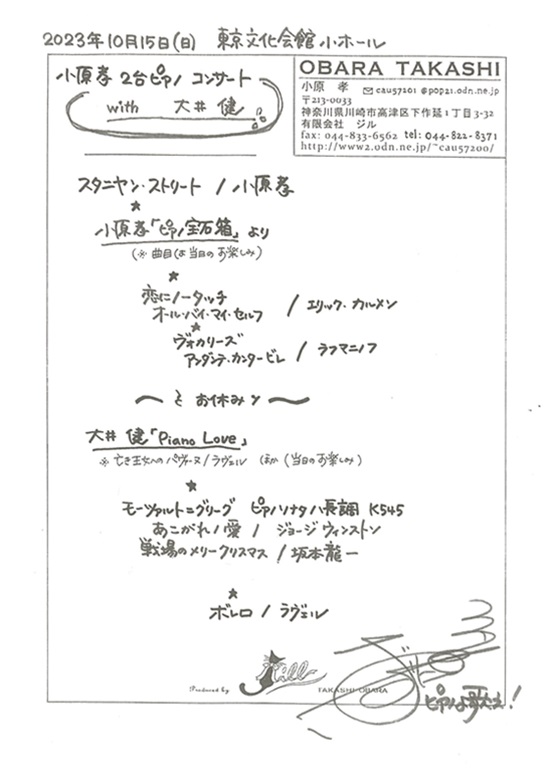 2023年10月15日(日) 東京文化会館 小ホール
小原孝 2台ピアノ コンサート
with 大井 健
OBARA TAKASHI
小原 孝 ✉cau57201 @pop21.odn.ne.jp
〒213-0033
神奈川県川崎市高津区下作延1丁目3-32
有限会社 ジル
fax: 044-833-6562 tel: 044-822-8371
http://www2.odn.ne.jp/~cau57200/
スタニヤン・ストリート / 小原孝
★
小原孝「ピアノ宝石箱」より
(※ 曲目は当日のお楽しみ)
★
恋にノータッチ
オール・バイ・マイ・セルフ / エリック・カルメン
★
ヴォカリーズ
アンダンテ・カンタービレ / ラフマニノフ
〜 ちょお休み 〜
大井 健「Piano Love」
※ 亡き王女へのパヴァーヌ/ラヴェル ほか (当日のお楽しみ)
★
モーツァルト=グリーグ ピアノソナタハ長調 K545
あこがれ/愛 / ジョージ・ウィンストン
戦場のメリークリスマス / 坂本龍一
★
ボレロ / ラヴェル
Produced by Jill TAKASHI OBARA
ピアノよ歌え!